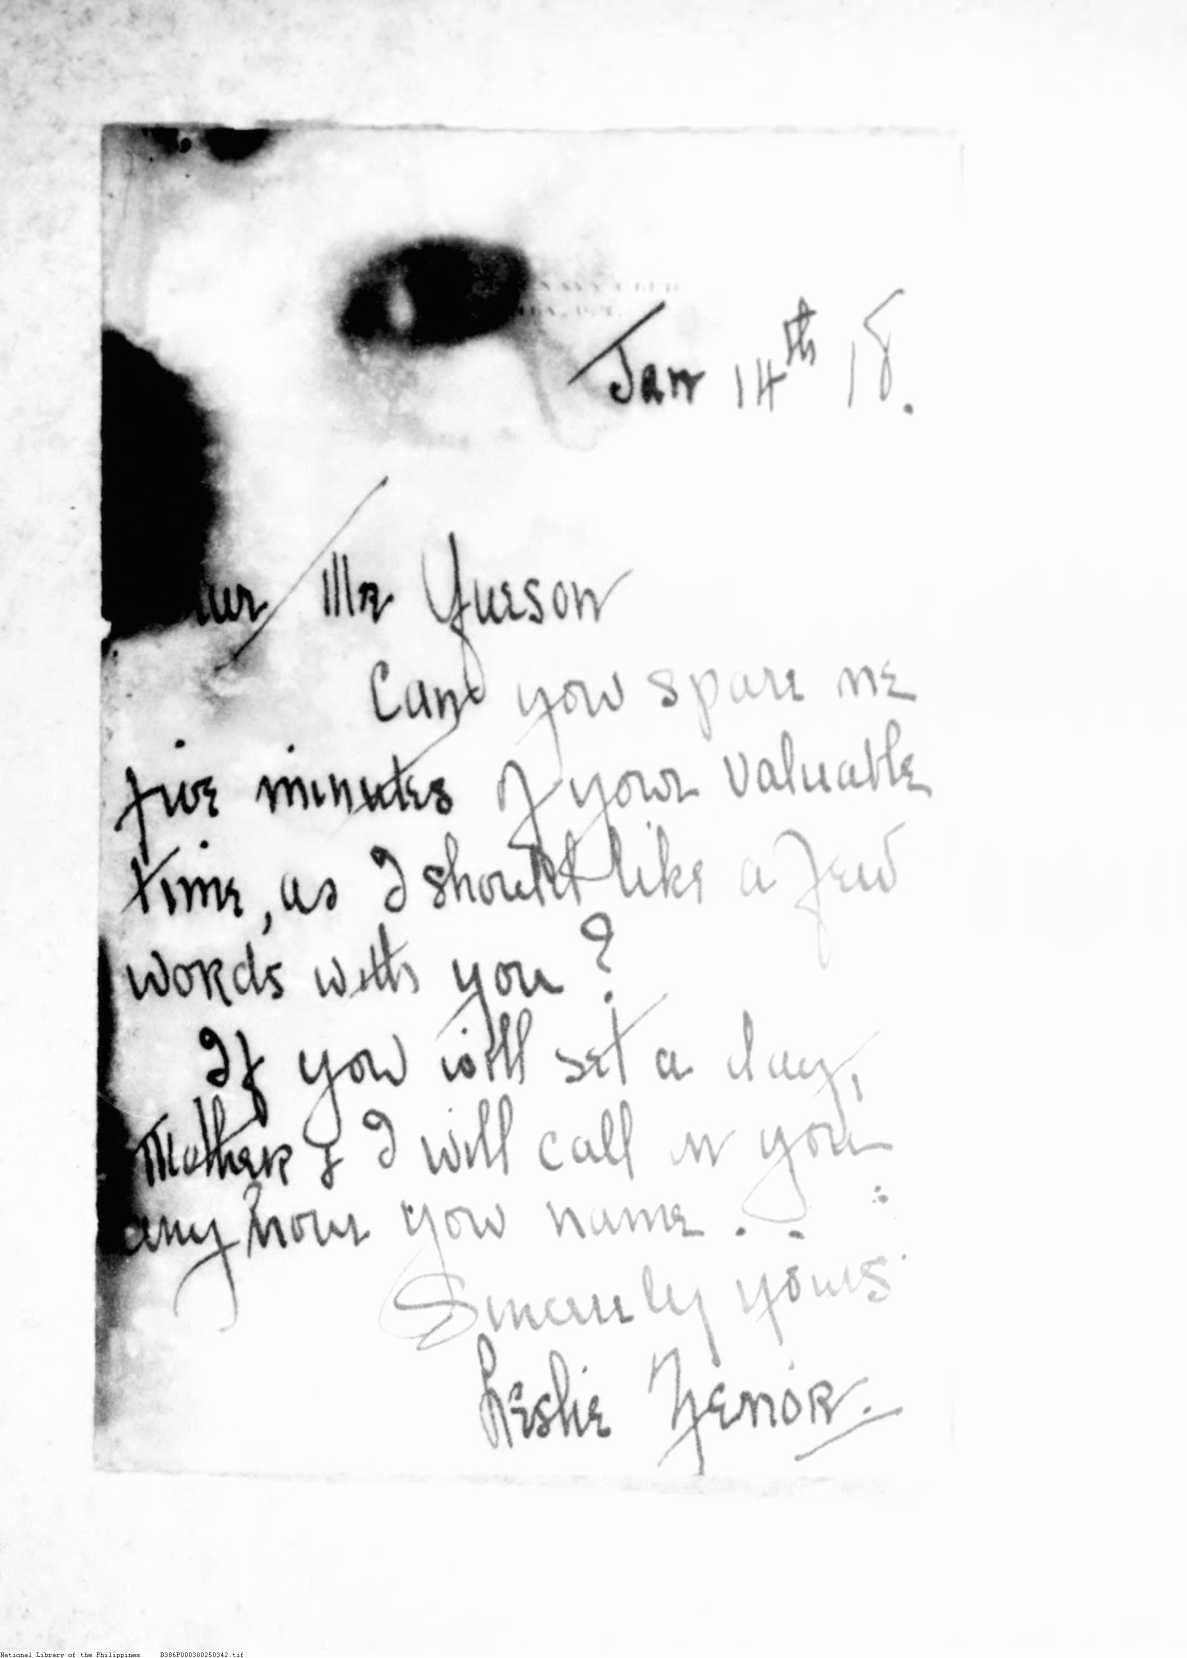 NAVY CLUB
Jan 14th 18.
Mr Yueson
Can you spare me
five minutes of your valuable
time, as I should like a few
words with you?
If you will set a day,
Mother & I will call on you
any hour you name...
Sincerely yours
Leslie
National Library of the Philippines B386P000380250342.tif